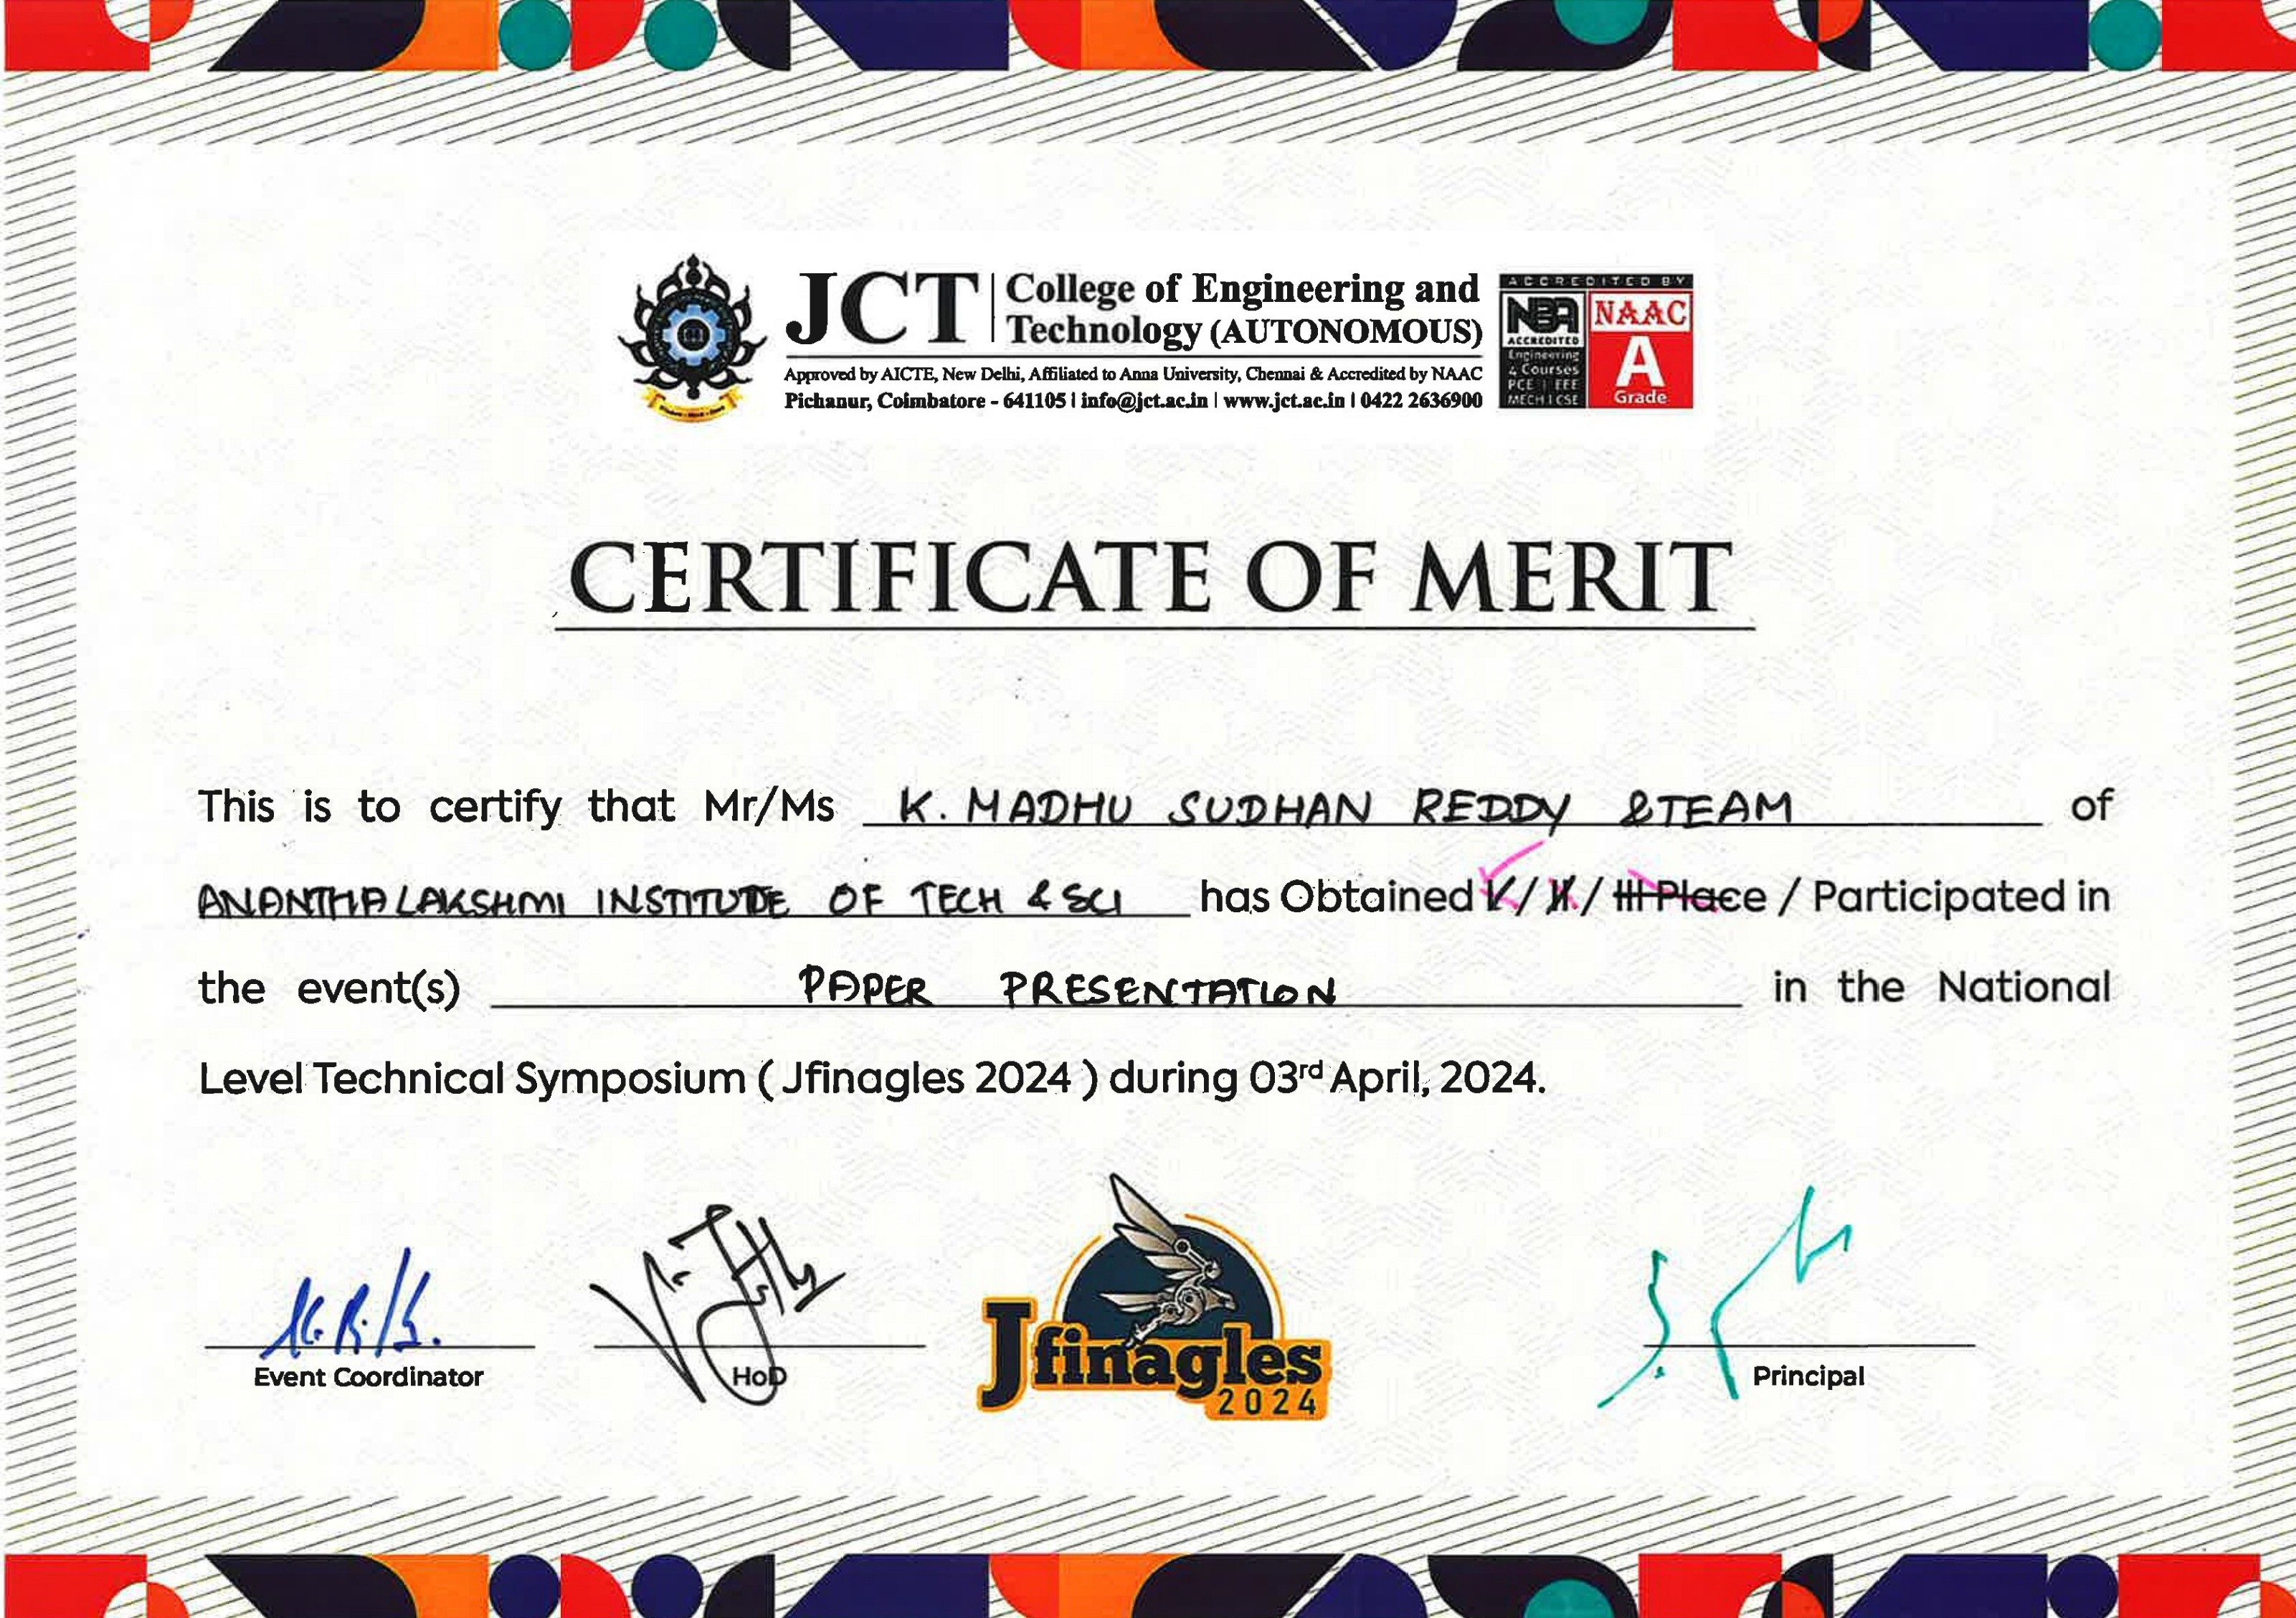 JCT College of Engineering and
Technology (AUTONOMOUS)
Approved by AICTE, New Delhi, Affiliated to Anna University, Chennai & Accredited by NAAC
Pichanur, Coimbatore - 641105 | info@jct.ac.in | www.jct.ac.in | 0422 2636900
ACCREDITED BY
NBA
ACCREDITED
Engineering
4 Courses
PCE | EEE
MECH | CSE
NAAC
A
Grade
CERTIFICATE OF MERIT
This is to certify that Mr/Ms K. MADHU SUDHAN REDDY &TEAM of
ANANTHA LAKSHMI INSTITUTE OF TECH & SCI has Obtained I / II / III Place / Participated in
the event(s) PAPER PRESENTATION in the National
Level Technical Symposium ( Jfinagles 2024 ) during 03rd April, 2024.
Event Coordinator
HoD
Jfinagles
2024
Principal